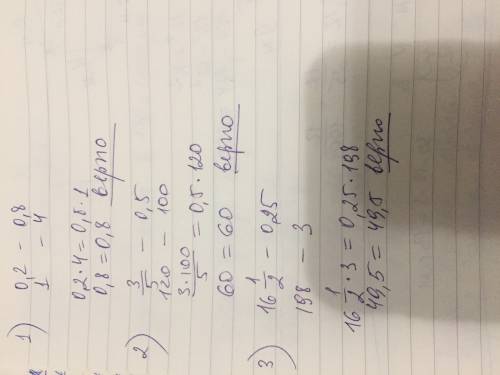 1) 0,2 – 0,8
1 – 4
0,2·4=0,8·1
0,8=0,8 верно
2) 3/5 – 0,5
120 – 100
3·100/5 = 0,5·120
60 = 60 верно
3) 16 1/2 – 0,25
198 – 3
16 1/2 · 3 = 0,25·198
49,5 = 49,5 верно